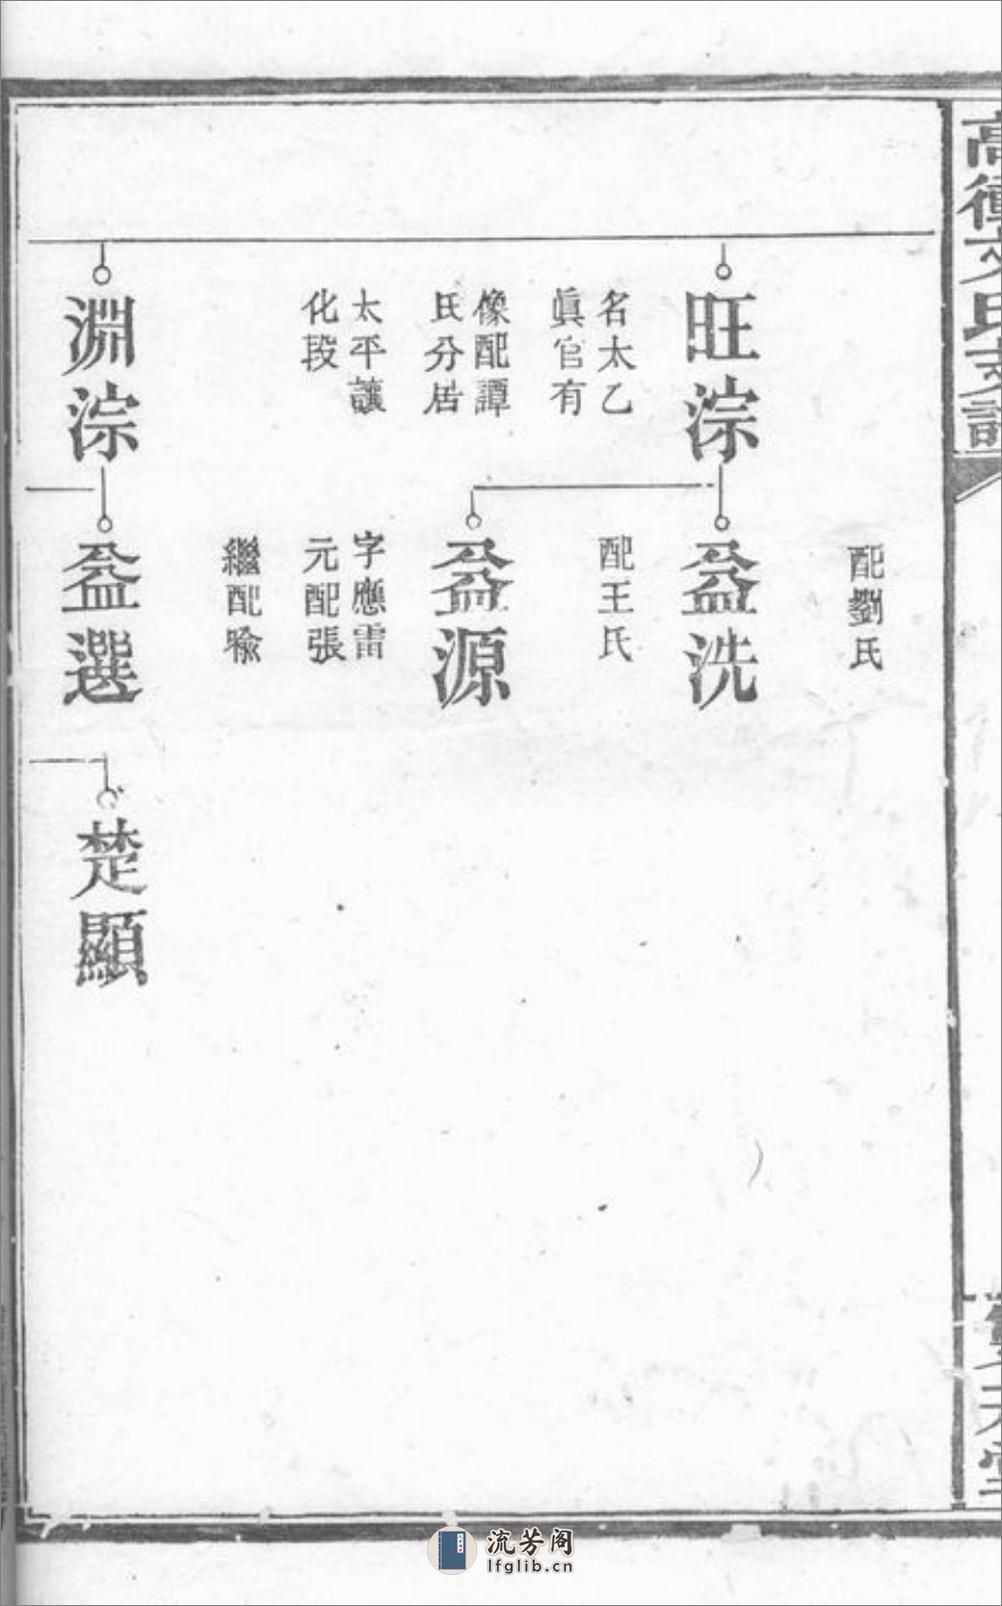 高衝文氏支譜
配劉氏
旺淙
名太乙
眞官有
像配譚
氏分居
太平讓
化段
淵淙
益洗
配王氏
益源
字應雷
元配張
繼配喩
益選
楚顯
流芳阁
lfglib.cn